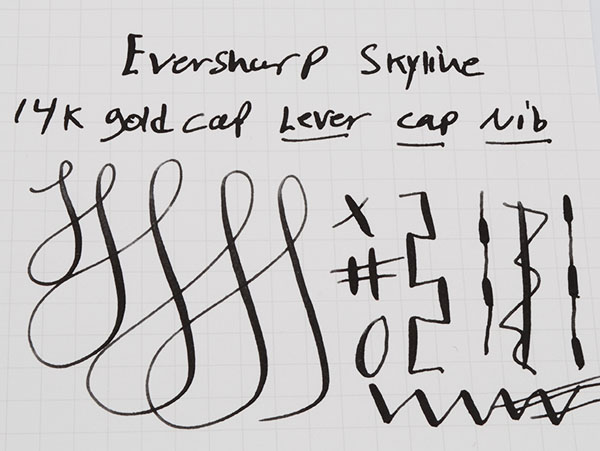 Eversharp Skyline
14K gold cap Lever cap Nib
X
#
O